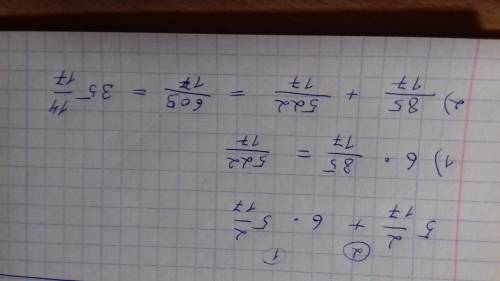 ② ①
5 2/17 + 6 · 5 2/17
1) 6 · 87/17 = 522/17
2) 87/17 + 522/17 = 609/17 = 35 14/17